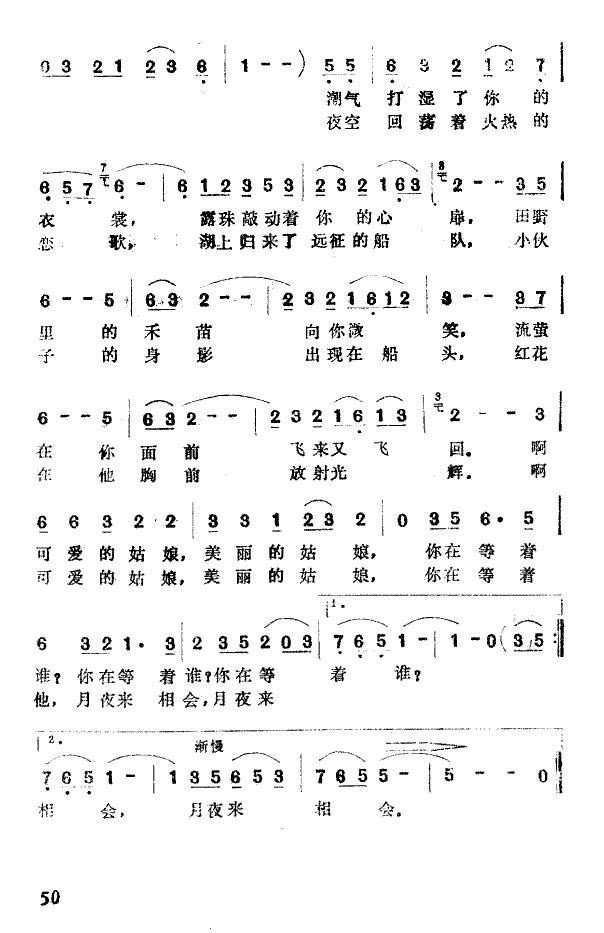 0 3 2 1 2 3 6 | 1 - - ) | 5 5 | 6 3 2 1 2 7 |
潮气 打湿了你的
夜空 回荡着火热的
6 5 7 6 - | 6 1 2 3 5 3 | 2 3 2 1 6 3 | 2 - - 3 5 |
衣 裳, 露珠敲动着 你 的心 扉, 田野
恋 歌, 湖上归来了 远征的船 队, 小伙
6 - - 5 | 6 3 2 - - | 2 3 2 1 6 1 2 | 3 - - 3 7 |
里 的 禾 苗 向你微 笑, 流萤
子 的 身 影 出现在 船 头, 红花
6 - - 5 | 6 3 2 - - | 2 3 2 1 6 1 3 | 2 - - 3 |
在 你 面 前 飞来又 飞 回。 啊
在 他 胸 前 放射光 辉。 啊
6 6 3 2 2 | 3 3 1 2 3 2 | 0 3 5 6 · 5 |
可 爱 的 姑 娘, 美 丽 的 姑 娘, 你在 等 着
可 爱 的 姑 娘, 美 丽 的 姑 娘, 你在 等 着
1.
6 3 2 1 · 3 | 2 3 5 2 0 3 | 7 6 5 1 - | 1 - 0 ( 3 5 :
谁? 你在等 着 谁? 你在等 着 谁?
他, 月夜来 相 会, 月夜来
2. 渐慢
7 6 5 1 - | 1 3 5 6 5 3 | 7 6 5 5 - | 5 - - 0
相 会, 月夜来 相 会。
50